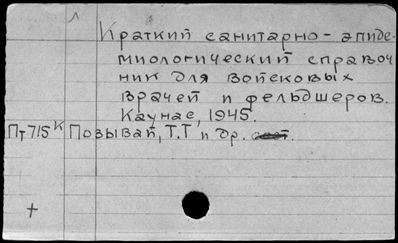 Краткий санитарно-эпиде-
миологический справоч
ник для войсковых
врачей и фельдшеров.
Каунас, 1945.
Пт715к Позывай, Т.Т и др.
+